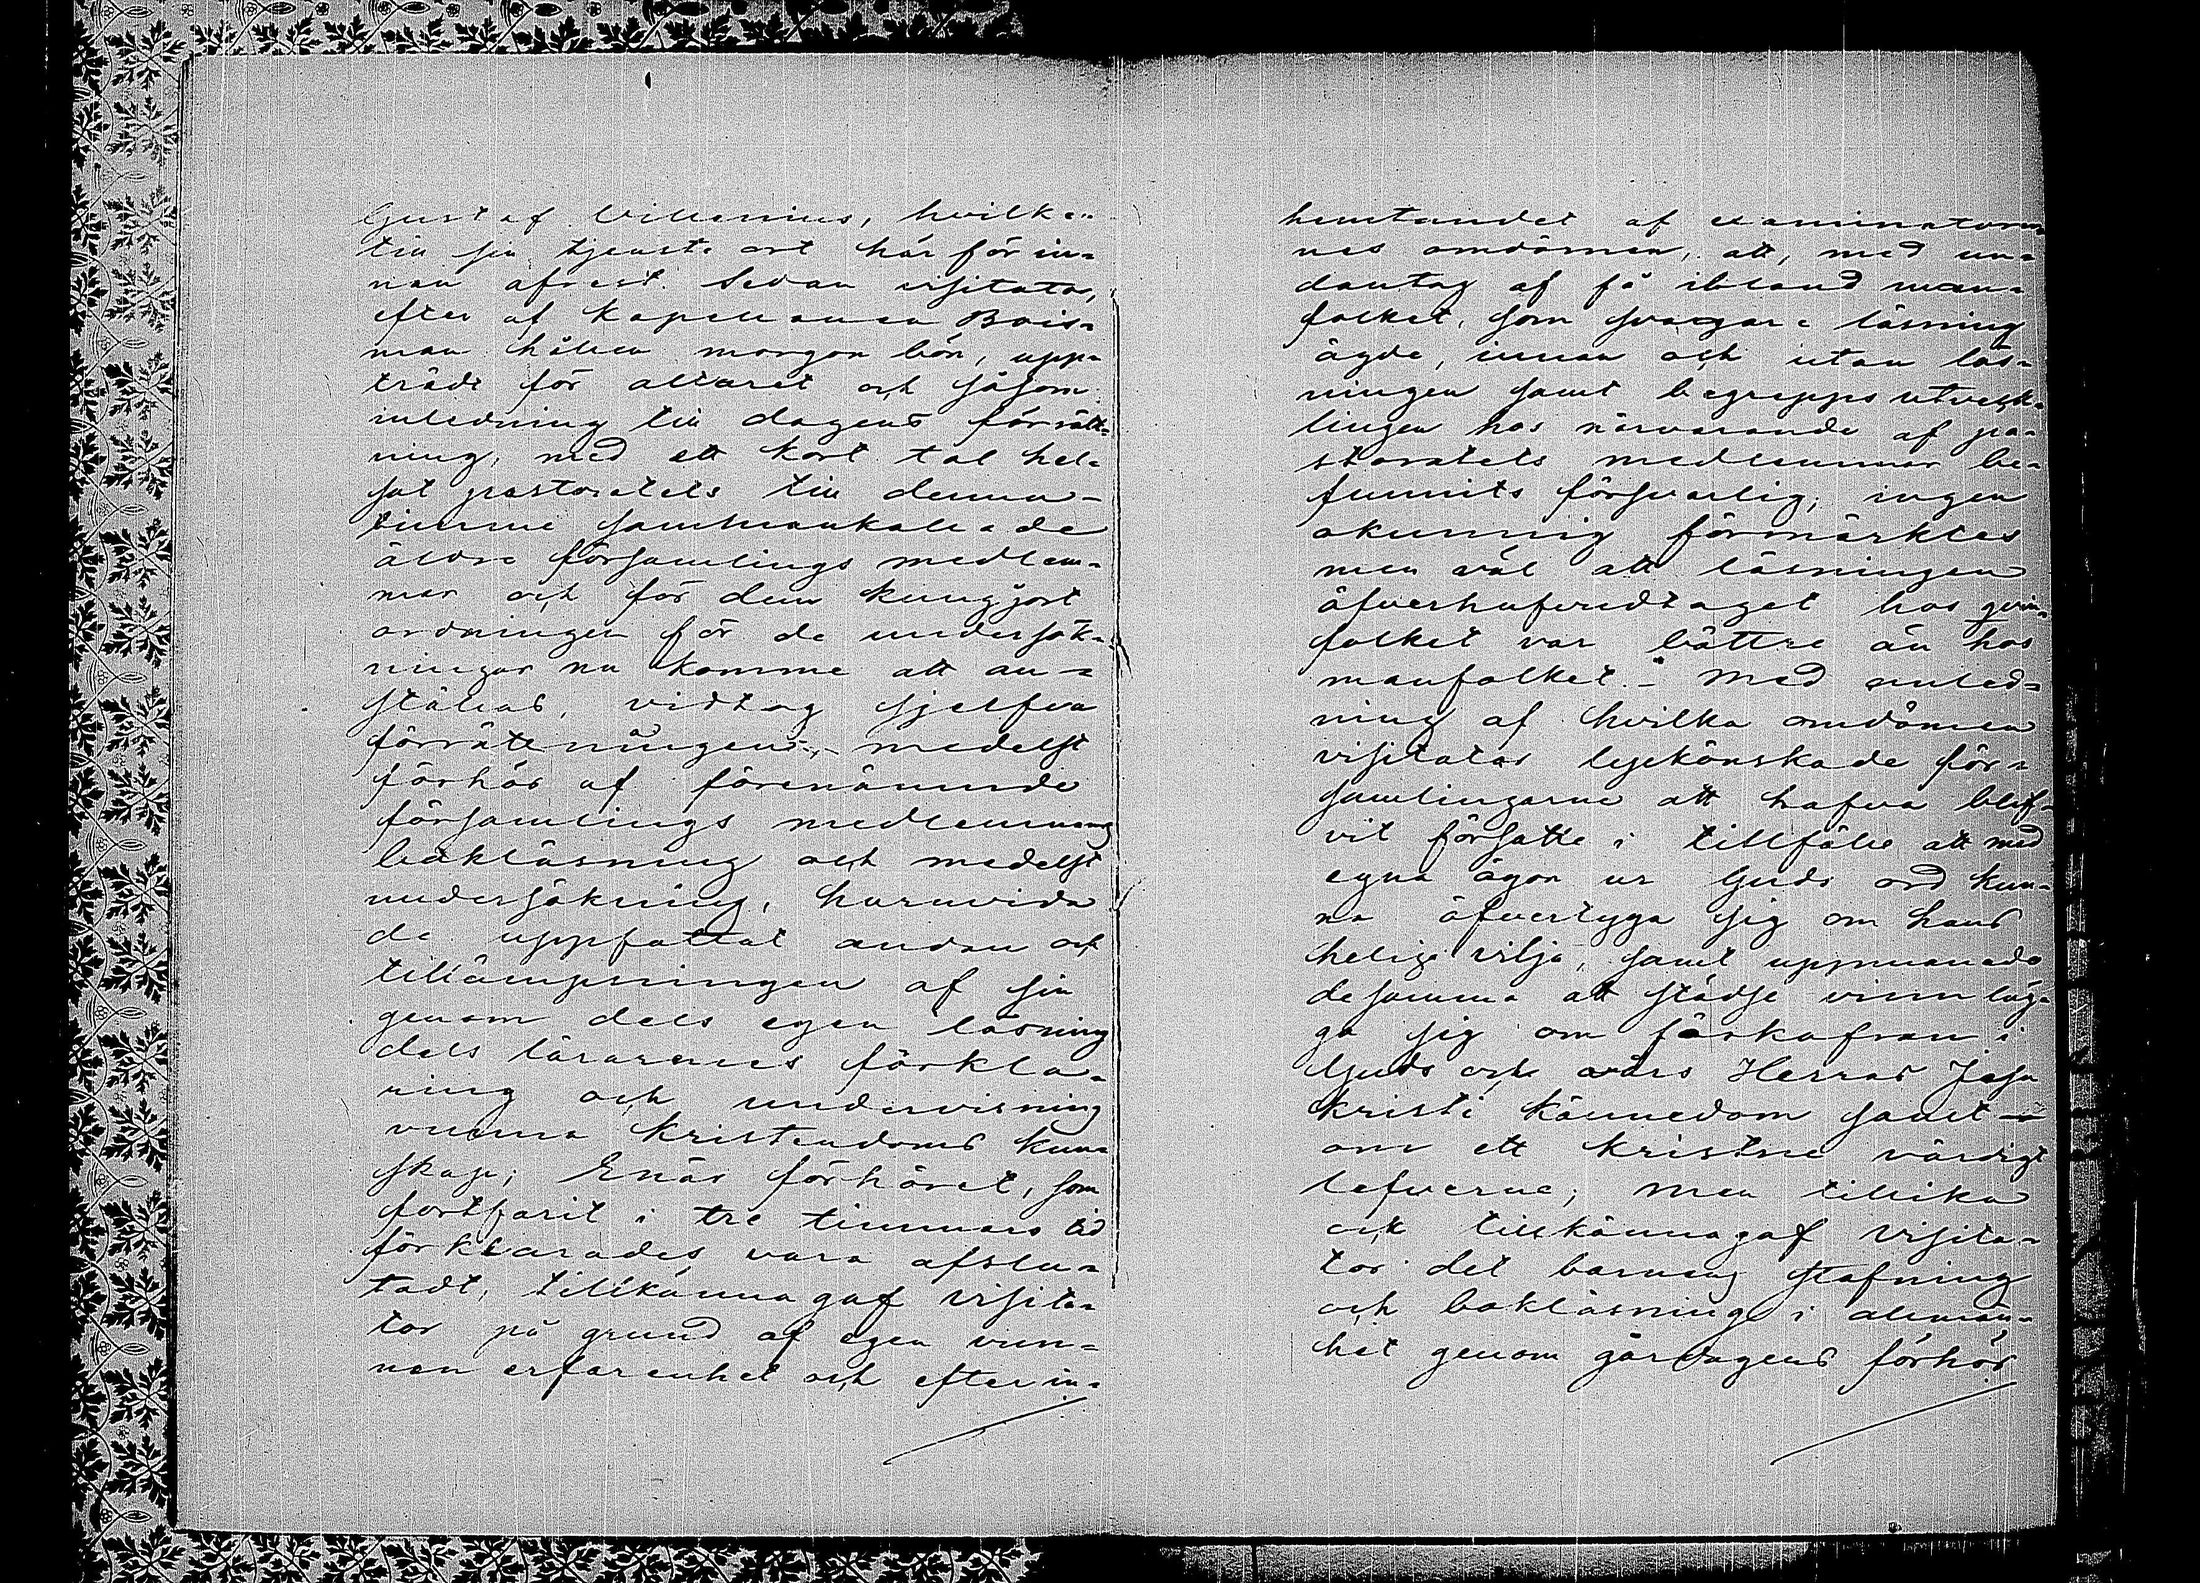 Gustaf Willenius, hvilken
till sin tjenste ort här för in-
nan afrest. Sedan visitator,
efter af kapellanen Bois-
man hållen morgon bön, upp-
trädt för altaret och såsom
inledning till dagens förrätt-
ning, med ett kort tal hel-
sat pastoratets till denna
timme sammankallade
äldre församlings medlem-
mar och för dem kungjort
ordningen för de undersök-
ningar nu komme att an-
ställas, vidtog sjelfva
förrättningen, medelst
förhör af förenämnde
församlings medlemmars
bokläsning och medelst
undersökning, huruvida
de uppfattat andan och
tillämpningen af sin
genom dels egen läsning
dels lärarenes förkla-
ring och undervisning
vunna kristendoms kun-
skap; Enär förhöret, som
fortfarit i tre timmars tid
förklarades vara afslu-
tadt, tillkännagaf visita-
tor på grund af egen vun-
nen erfarenhet och efter in-
hemtandet af examinatorer-
nes omdömen, att, med un-
dantag af få ibland man-
folket, som svagare läsning
ägde, innan och utan läs-
ningen samt begrepps utveck-
lingen hos närvarande af pa-
storatets medlemmar be-
funnits försvarlig; ingen
okunnig förmärktes
men väl att läsningen
öfverhufvudtaget hos qvin-
folket var bättre än hos
manfolket." Med anled-
ning af hvilka omdömen
visitator lyckönskade för-
samlingarne att hafva blif-
vit försatte i tillfälle att med
egna ögon ur Guds ord kun-
na öfvertyga sig om hans
helige vilja, samt uppmanade
desamma att städse vinnlägg-
ga sig om förkofran i
Guds och vårs Herras Jesu
Kristi kännedom samt
om ett kristne värdigt
lefverne; men tillika
ock tillkännagaf visita-
tor det barnens stafning
och bokläsning i allmän-
het genom gårdagens förhör